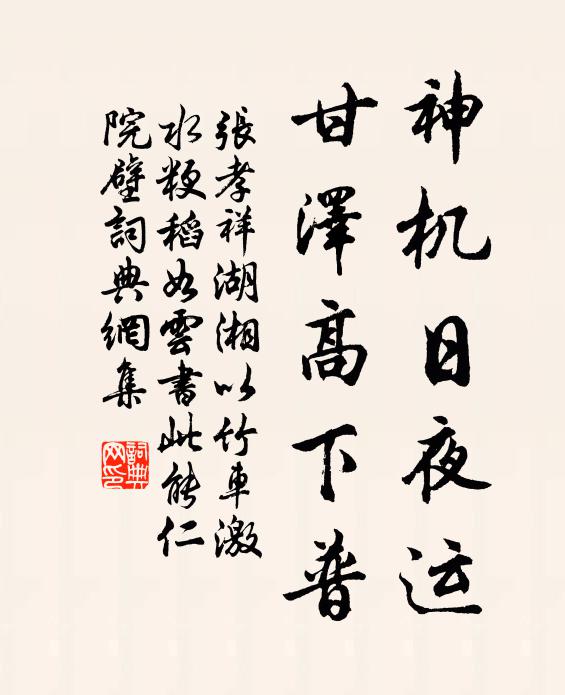 神机日夜运
甘澤高下普
張孝祥湖湘以竹車激
水粳稻如雲書此能仁
院壁詞典網集
詞典
网印